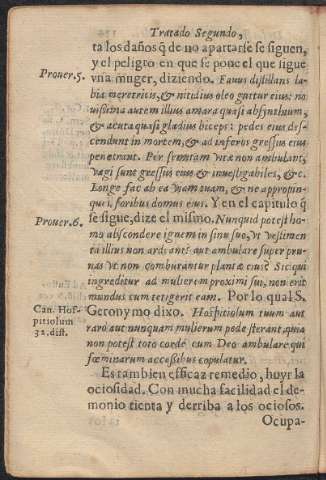 Tratado Segundo,
ta los daños q̃ de no apartarse se siguen,
y el peligro en que se pone el que sigue
Prouer.5. vna muger, diziendo. Fauus distillans la-
bia meretricis, & nitidius oleo guttur eius: no
uissima autem illius amara quasi absynthium,
& acuta quasi gladius biceps: pedes eius des-
cendunt in mortem, & ad inferos gressus eius
penetrant. Per semitam vitæ non ambulant,
vagi sunt gressus eius & inuestigabiles, &c.
Longe fac ab ea viam tuam, & ne appropin-
qui. foribus domus eius. Y en el capitulo q̃
Prouer.6. se sigue, dize el mismo. Nunquid potest ho-
mo abscondere ignem in sinu suo, vt vestimen
ta illius non ardeant: aut ambulare super pru-
nas vt non comburantur plantæ eius? Sic qui
ingreditur ad mulierem proximi sui, non erit
mundus cum tetigerit eam. Por lo qual S.
Can. Hos- Geronymo dixo. Hospitiolum tuum aut
pitiolum raro aut nunquam mulierum pede sterant, quia
32. dist. non potest toto corde cum Deo ambulare qui
fœminarum accessibus copulatur.
Es tambien efficaz remedio, huyr la
ociosidad. Con mucha facilidad el de-
monio tienta y derriba a los ociosos.
Ocupa-